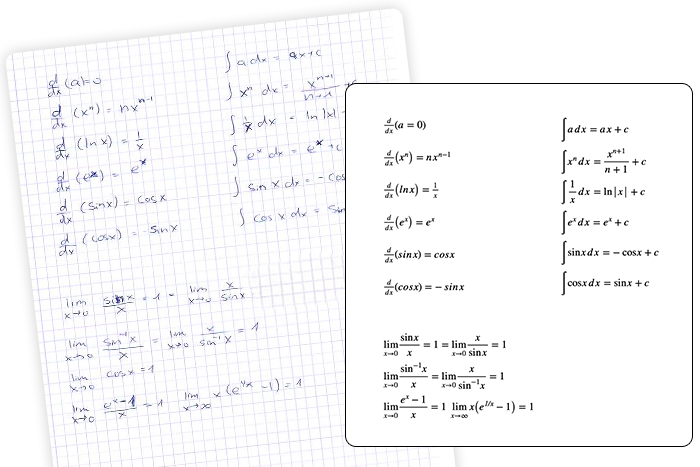 d/dx (a)=0
d/dx (xⁿ) = nxⁿ⁻¹
d/dx (ln x) = 1/x
d/dx (eˣ) = eˣ
d/dx (sinx) = cosx
d/dx (cosx) = -sinx
∫ a dx = ax+c
∫ xⁿ dx = xⁿ⁺¹/n+1 +c
∫ 1/x dx = ln |x|
∫ eˣ dx = eˣ +c
∫ sin x dx = - cos
∫ cos x dx = sin
lim x→0 sinx/x = 1 = lim x→0 x/sinx
lim x→0 sin⁻¹x/x = lim x→0 x/sin⁻¹x = 1
lim x→0 cosx = 1
lim x→0 eˣ-1/x = 1 lim x→∞ x(e^1/x -1) = 1
d/dx(a = 0)
d/dx(xⁿ) = nxⁿ⁻¹
d/dx(lnx) = 1/x
d/dx(eˣ) = eˣ
d/dx(sinx) = cosx
d/dx(cosx) = − sinx
∫a dx = ax + c
∫xⁿ dx = xⁿ⁺¹/n + 1 + c
∫1/x dx = ln|x| + c
∫eˣ dx = eˣ + c
∫sinx dx = − cosx + c
∫cosx dx = sinx + c
lim x→0 sinx/x = 1 = lim x→0 x/sinx = 1
lim x→0 sin⁻¹x/x = lim x→0 x/sin⁻¹x = 1
lim x→0 eˣ − 1/x = 1 lim x→∞ x(e^1/x − 1) = 1